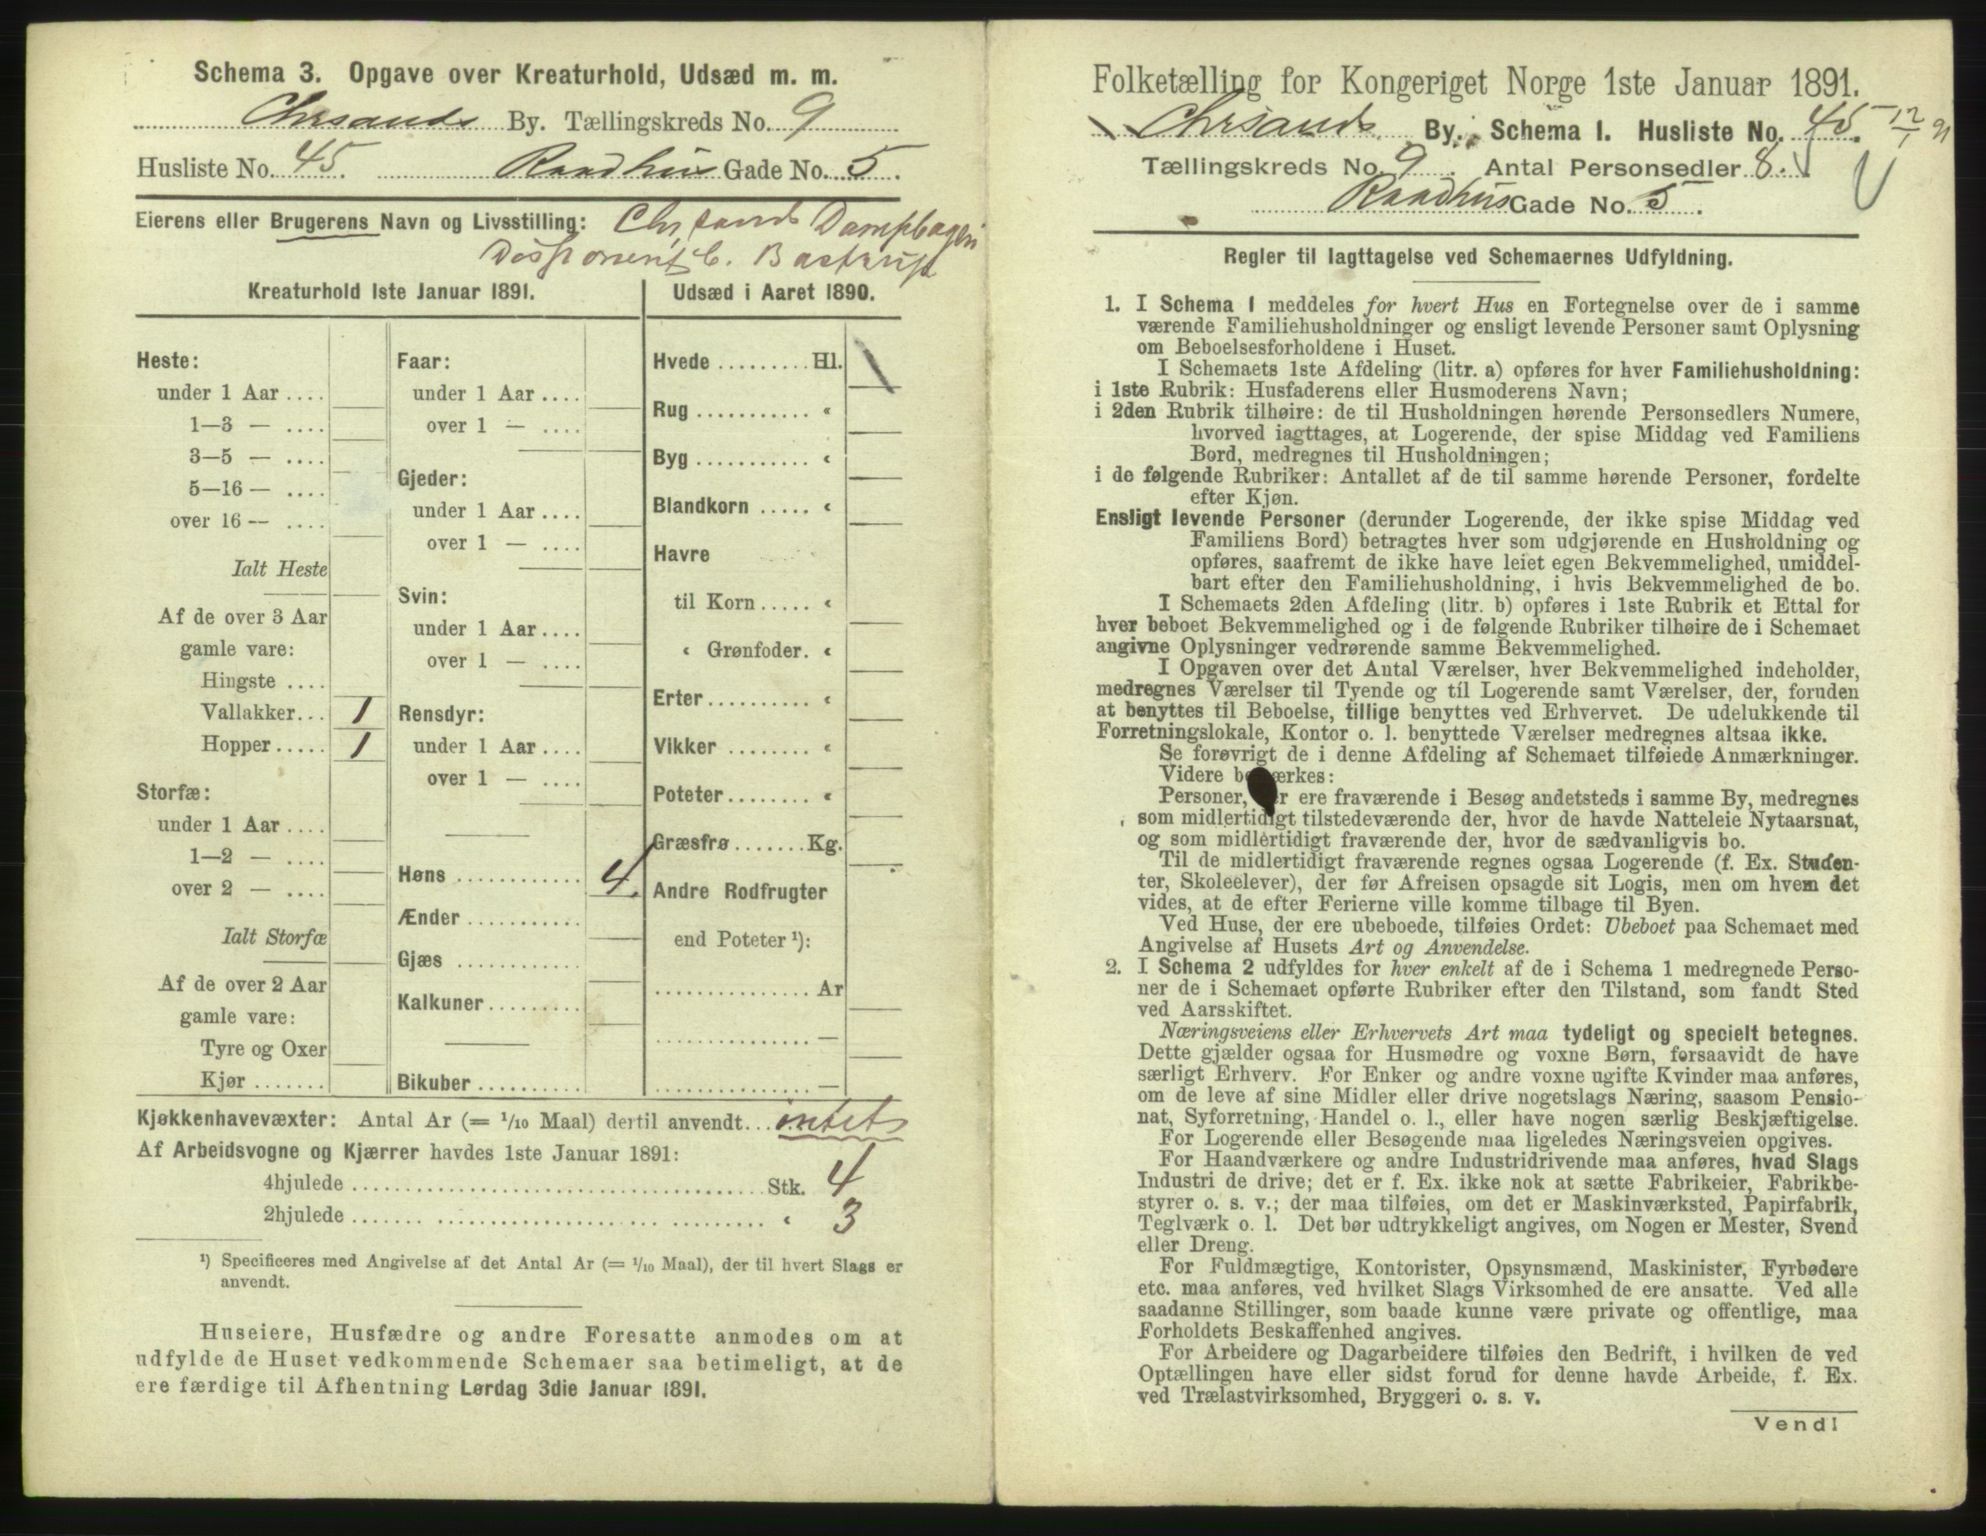 Schema 3. Opgave over Kreaturhold, Udsæd m. m.
Chrsands By. Tællingskreds No. 9
Husliste No. 45. Raadhus Gade No. 5.
Eierens eller Brugerens Navn og Livsstilling: Chrsands Dampbageri
Disponent C. Bastrup
Kreaturhold 1ste Januar 1891.
Heste:
under 1 Aar ....
1—3 — ....
3—5 — ....
5—16 — ....
over 16 — ....
Ialt Heste
Af de over 3 Aar
gamle vare:
Hingste ....
Vallakker... 1
Hopper ..... 1
Storfæ:
under 1 Aar ....
1—2 — ....
over 2 — ....
Ialt Storfæ
Af de over 2 Aar
gamle vare:
Tyre og Oxer
Kjør .......
Faar:
under 1 Aar ....
over 1 — ....
Gjeder:
under 1 Aar ....
over 1 — ....
Svin:
under 1 Aar ....
over 1 — ....
Rensdyr:
under 1 Aar ....
over 1 — ....
Høns ........... 4.
Ænder ..........
Gjæs ...........
Kalkuner ........
Bikuber .........
Udsæd i Aaret 1890.
Hvede ......... Hl.
Rug ........... «
Byg ........... «
Blandkorn ..... «
Havre
til Korn ..... «
« Grønfoder. «
Erter ......... «
Vikker ........ «
Poteter........ «
Græsfrø ....... Kg.
Andre Rodfrugter
end Poteter ¹):
............... Ar
............... —
............... —
Kjøkkenhavevæxter: Antal Ar (= 1/10 Maal) dertil anvendt... intet
Af Arbeidsvogne og Kjærrer havdes 1ste Januar 1891:
4hjulede .......... Stk. 4
2hjulede .......... « 3
¹) Specificeres med Angivelse af det Antal Ar (= 1/10 Maal), der til hvert Slags er
anvendt.
Huseiere, Husfædre og andre Foresatte anmodes om at
udfylde de Huset vedkommende Schemaer saa betimeligt, at de
ere færdige til Afhentning Lørdag 3die Januar 1891.
Folketælling for Kongeriget Norge 1ste Januar 1891.
Chrsands By. Schema 1. Husliste No. 45. 12/1 91
Tællingskreds No. 9. Antal Personsedler 8.
Raadhus Gade No. 5.
Regler til Iagttagelse ved Schemaernes Udfyldning.
1. I Schema 1 meddeles for hvert Hus en Fortegnelse over de i samme
værende Familiehusholdninger og ensligt levende Personer samt Oplysning
om Beboelsesforholdene i Huset.
I Schemaets 1ste Afdeling (litr. a) opføres for hver Familiehusholdning:
i 1ste Rubrik: Husfaderens eller Husmoderens Navn;
i 2den Rubrik tilhøire: de til Husholdningen hørende Personsedlers Numere,
hvorved iagttages, at Logerende, der spise Middag ved Familiens
Bord, medregnes til Husholdningen;
i de følgende Rubriker: Antallet af de til samme hørende Personer, fordelte
efter Kjøn.
Ensligt levende Personer (derunder Logerende, der ikke spise Middag ved
Familiens Bord) betragtes hver som udgjørende en Husholdning og
opføres, saafremt de ikke have leiet egen Bekvemmelighed, umiddel-
bart efter den Familiehusholdning, i hvis Bekvemmelighed de bo.
I Schemaets 2den Afdeling (litr. b) opføres i 1ste Rubrik et Ettal for
hver beboet Bekvemmelighed og i de følgende Rubriker tilhøire de i Schemaet
angivne Oplysninger vedrørende samme Bekvemmelighed.
I Opgaven over det Antal Værelser, hver Bekvemmelighed indeholder,
medregnes Værelser til Tyende og til Logerende samt Værelser, der, foruden
at benyttes til Beboelse, tillige benyttes ved Erhvervet. De udelukkende til
Forretningslokale, Kontor o. l. benyttede Værelser medregnes altsaa ikke.
Se forøvrigt de i denne Afdeling af Schemaet tilføiede Anmærkninger.
Videre bemærkes:
Personer, der ere fraværende i Besøg andetsteds i samme By, medregnes
som midlertidigt tilstedeværende der, hvor de havde Natteleie Nytaarsnat,
og som midlertidigt fraværende der, hvor de sædvanligvis bo.
Til de midlertidigt fraværende regnes ogsaa Logerende (f. Ex. Studen-
ter, Skoleelever), der før Afreisen opsagde sit Logis, men om hvem det
vides, at de efter Ferierne ville komme tilbage til Byen.
Ved Huse, der ere ubeboede, tilføies Ordet: Ubeboet paa Schemaet med
Angivelse af Husets Art og Anvendelse.
2. I Schema 2 udfyldes for hver enkelt af de i Schema 1 medregnede Perso-
ner de i Schemaet opførte Rubriker efter den Tilstand, som fandt Sted
ved Aarsskiftet.
Næringsveiens eller Erhvervets Art maa tydeligt og specielt betegnes.
Dette gjælder ogsaa for Husmødre og voxne Børn, forsaavidt de have
særligt Erhverv. For Enker og andre voxne ugifte Kvinder maa anføres,
om de leve af sine Midler eller drive nogetslags Næring, saasom Pensio-
nat, Syforretning, Handel o. l., eller have nogen særlig Beskjæftigelse.
For Logerende eller Besøgende maa ligeledes Næringsveien opgives.
For Haandværkere og andre Industridrivende maa anføres, hvad Slags
Industri de drive; det er f. Ex. ikke nok at sætte Fabrikeier, Fabrikbe-
styrer o. s. v.; der maa tilføies, om det er Maskinværksted, Papirfabrik,
Teglværk o. l. Det bør udtrykkeligt angives, om Nogen er Mester, Svend
eller Dreng.
For Fuldmægtige, Kontorister, Opsynsmænd, Maskinister, Fyrbødere
etc. maa anføres, ved hvilket Slags Virksomhed de ere ansatte. Ved alle
saadanne Stillinger, som baade kunne være private og offentlige, maa
Forholdets Beskaffenhed angives.
For Arbeidere og Dagarbeidere tilføies den Bedrift, i hvilken de ved
Optællingen have eller sidst forud for denne havde Arbeide, f. Ex.
ved Trælastvirksomhed, Bryggeri o. s. v.
Vend!